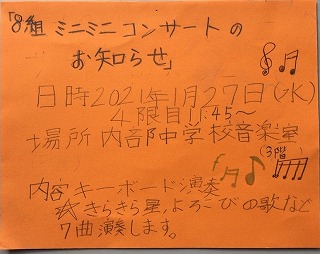 「8組 ミニミニコンサートの
お知らせ」
日時2021年1月27日(水)
4限目11:45〜
場所 内部中学校音楽室
(3階)
内容 キーボード演奏
きらきら星,よろこびの歌など
7曲演奏します。